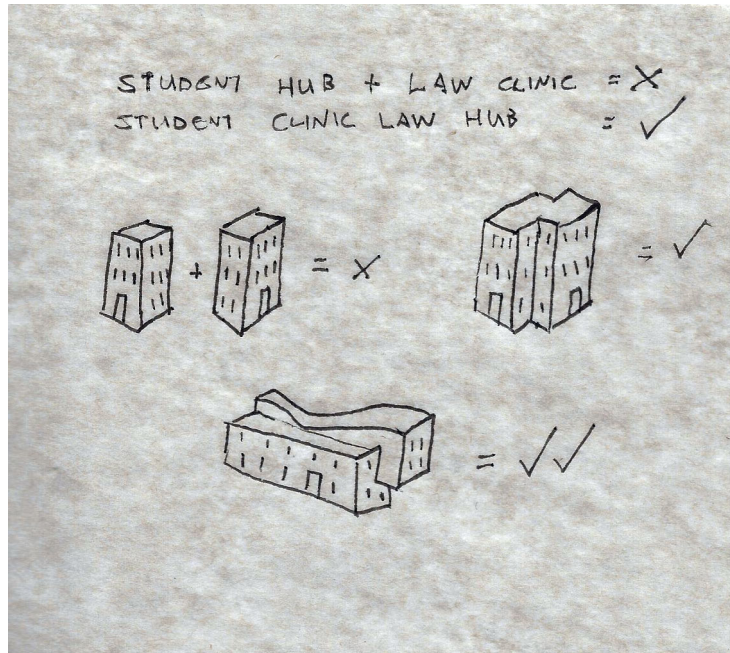 STUDENT HUB + LAW CLINIC = X
STUDENT CLINIC LAW HUB = ✓
+ = X
= ✓
= ✓✓